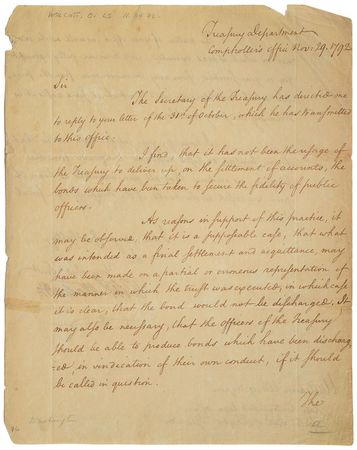 Wolcott, O. LS 11.29.92.
Treasury Department
Comptroller's Office Nov: 29. 1792
Sir
The Secretary of the Treasury has directed me
to reply to your letter of the 31st of October, which he has transmitted
to this office.
I find, that it has not been the usage of
the Treasury to deliver up, on the settlement of accounts, the
bonds which have been taken to secure the fidelity of public
officers.
As reasons in support of this practice, it
may be observed, that it is a supposeable case, that what
was intended as a final settlement and acquittance, may
have been made on a partial or erroneous representation of
the manner in which the trust was executed, in which case
it is clear, that the bond would not be discharged. It
may also be necessary, that the officers of the Treasury
should be able to produce bonds which have been discharg
=ed, in vindication of their own conduct, if it should
be called in question.
The